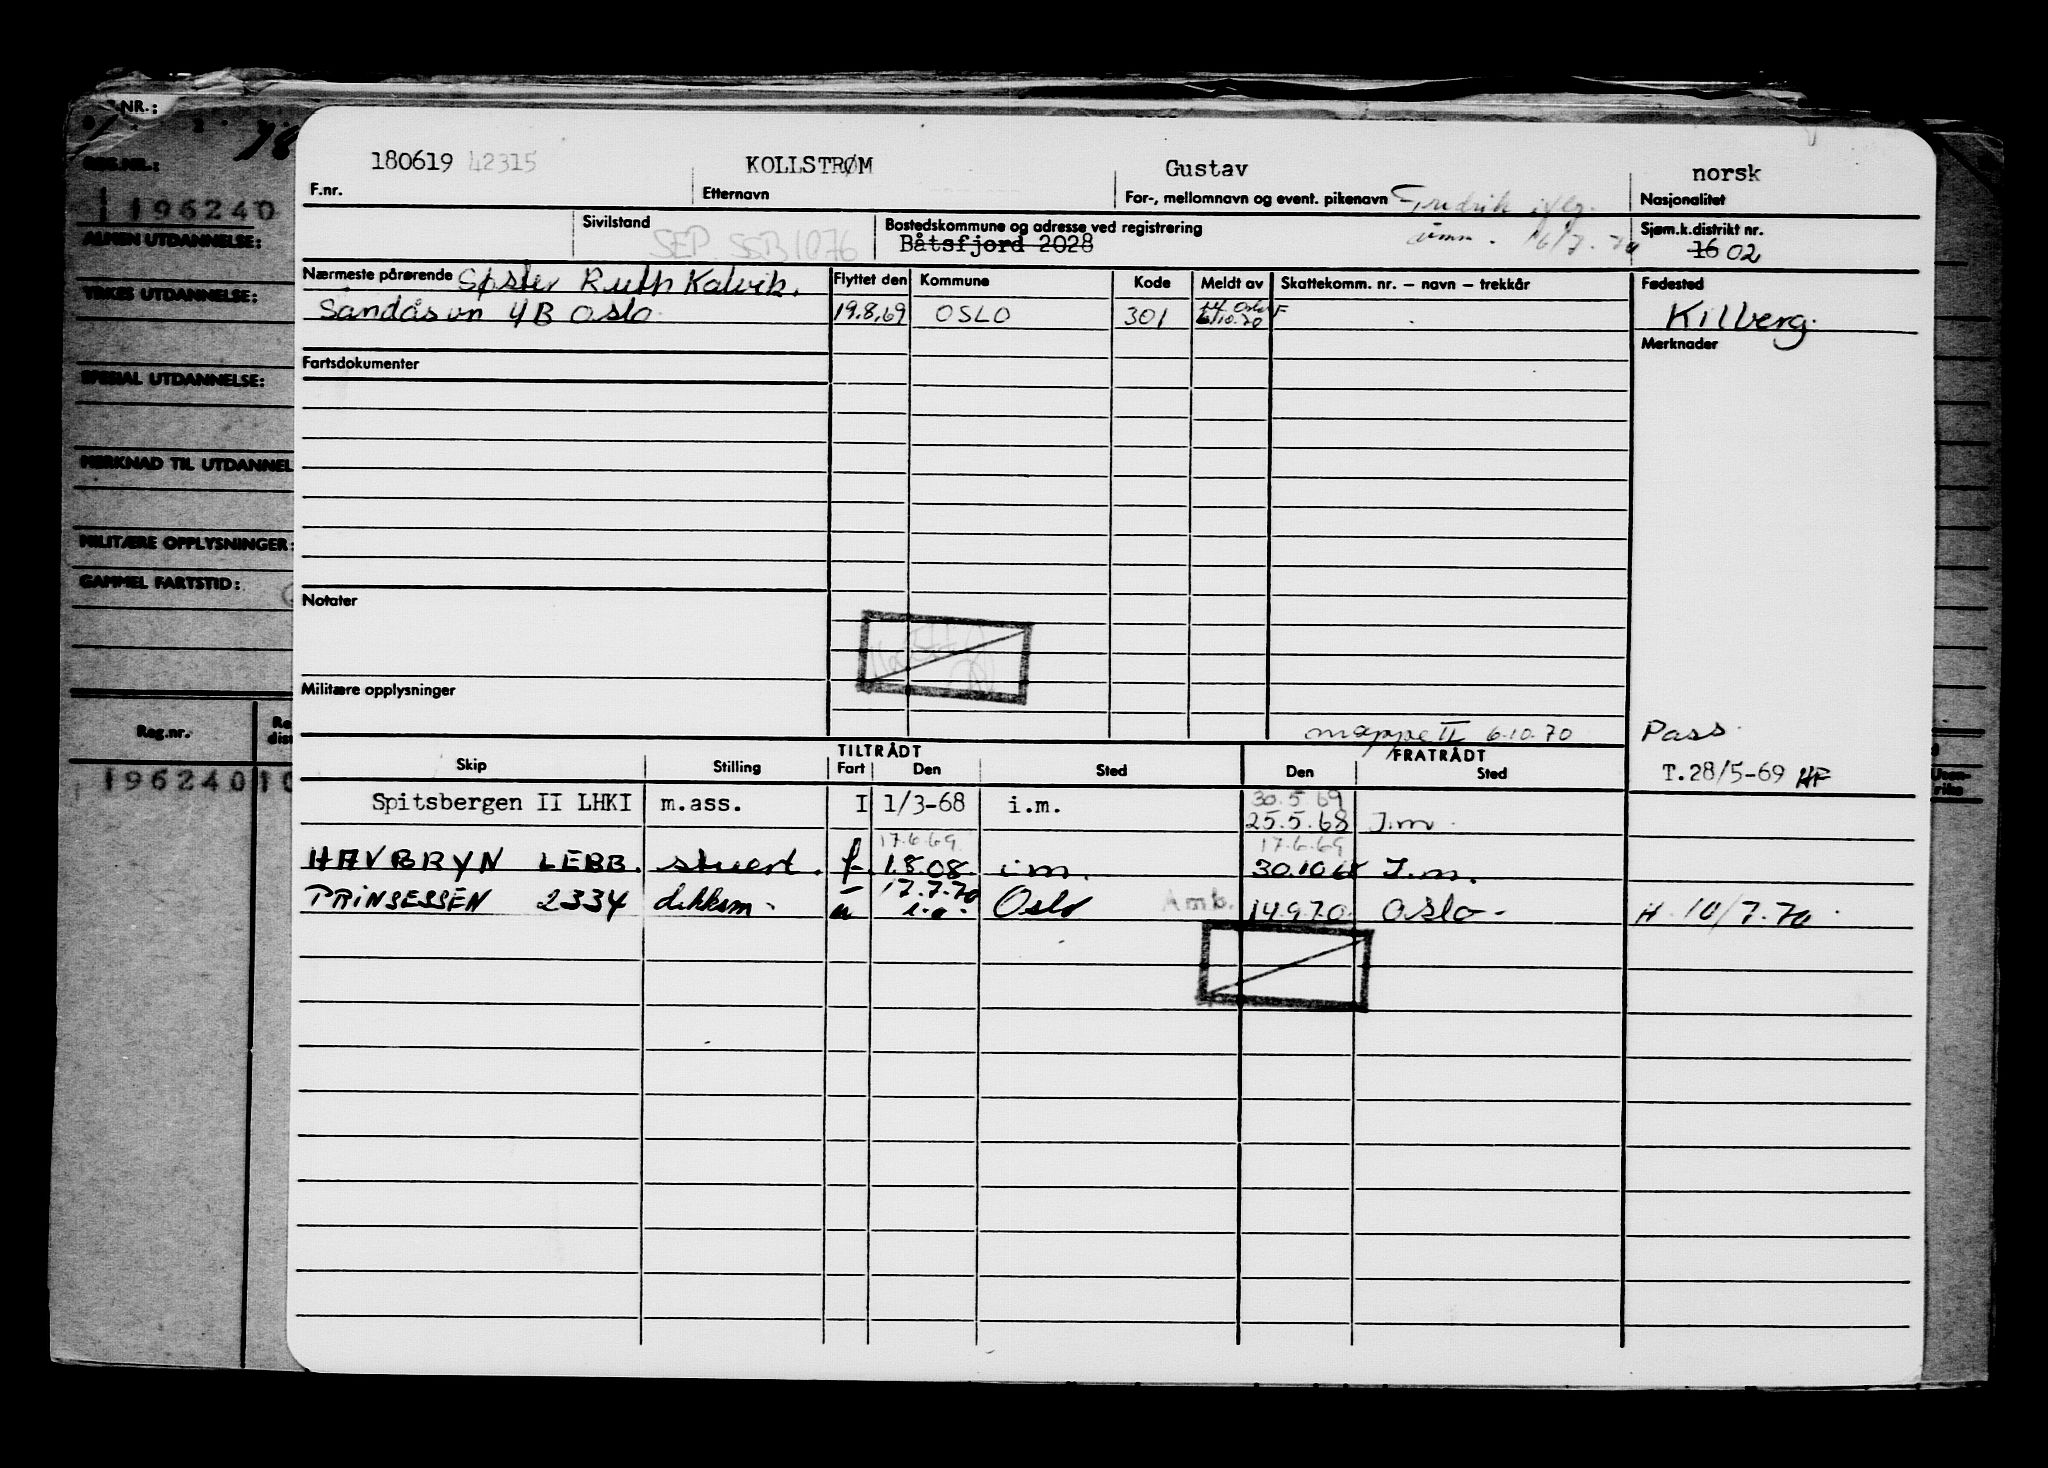 NR.:
REG.NR.:
196240
ALMEN UTDANNELSE:
YRKES UTDANNELSE:
SPESIAL UTDANNELSE:
MERKNAD TIL UTDANNEL
MILITÆRE OPPLYSNINGER:
GAMMEL FARTSTID:
Reg.nr.
196240
180619 42315 KOLLSTRØM Gustav norsk
F.nr. Etternavn For-, mellomnavn og event. pikenavn Fredrik iflg. Nasjonalitet
16/7.70
Sivilstand Bostedskommune og adresse ved registrering Sjøm.k.distrikt nr.
SEP. SSB 1076 Båtsfjord 2028 16 02
Nærmeste pårørende Søster Ruth Kalvik. Flyttet den Kommune Kode Meldt av Skattekomm. nr. – navn – trekkår Fødested
Sandåsvn 4B Oslo. 19.8.69 OSLO 301 6/10.70 Kilberg.
Fartsdokumenter Merknader
Notater
Militære opplysninger
mappe II 6.10.70 Pass
TILTRÅDT FRATRÅDT
Skip Stilling Fart Den Sted Den Sted T.28/5-69 HF
30.5.69
Spitsbergen II LHKI m.ass. I 1/3-68 i.m. 25.5.68 I.m.
17.6.69 17.6.69
HAVBRYN LEBB. stuert. f. 1.8.08. i.m. 30.10.68 I.m.
17.7.70
PRINSESSEN 2334 dekksm. u i.o. Oslo Amb. 14.9.70 Oslo - H. 10/7.70